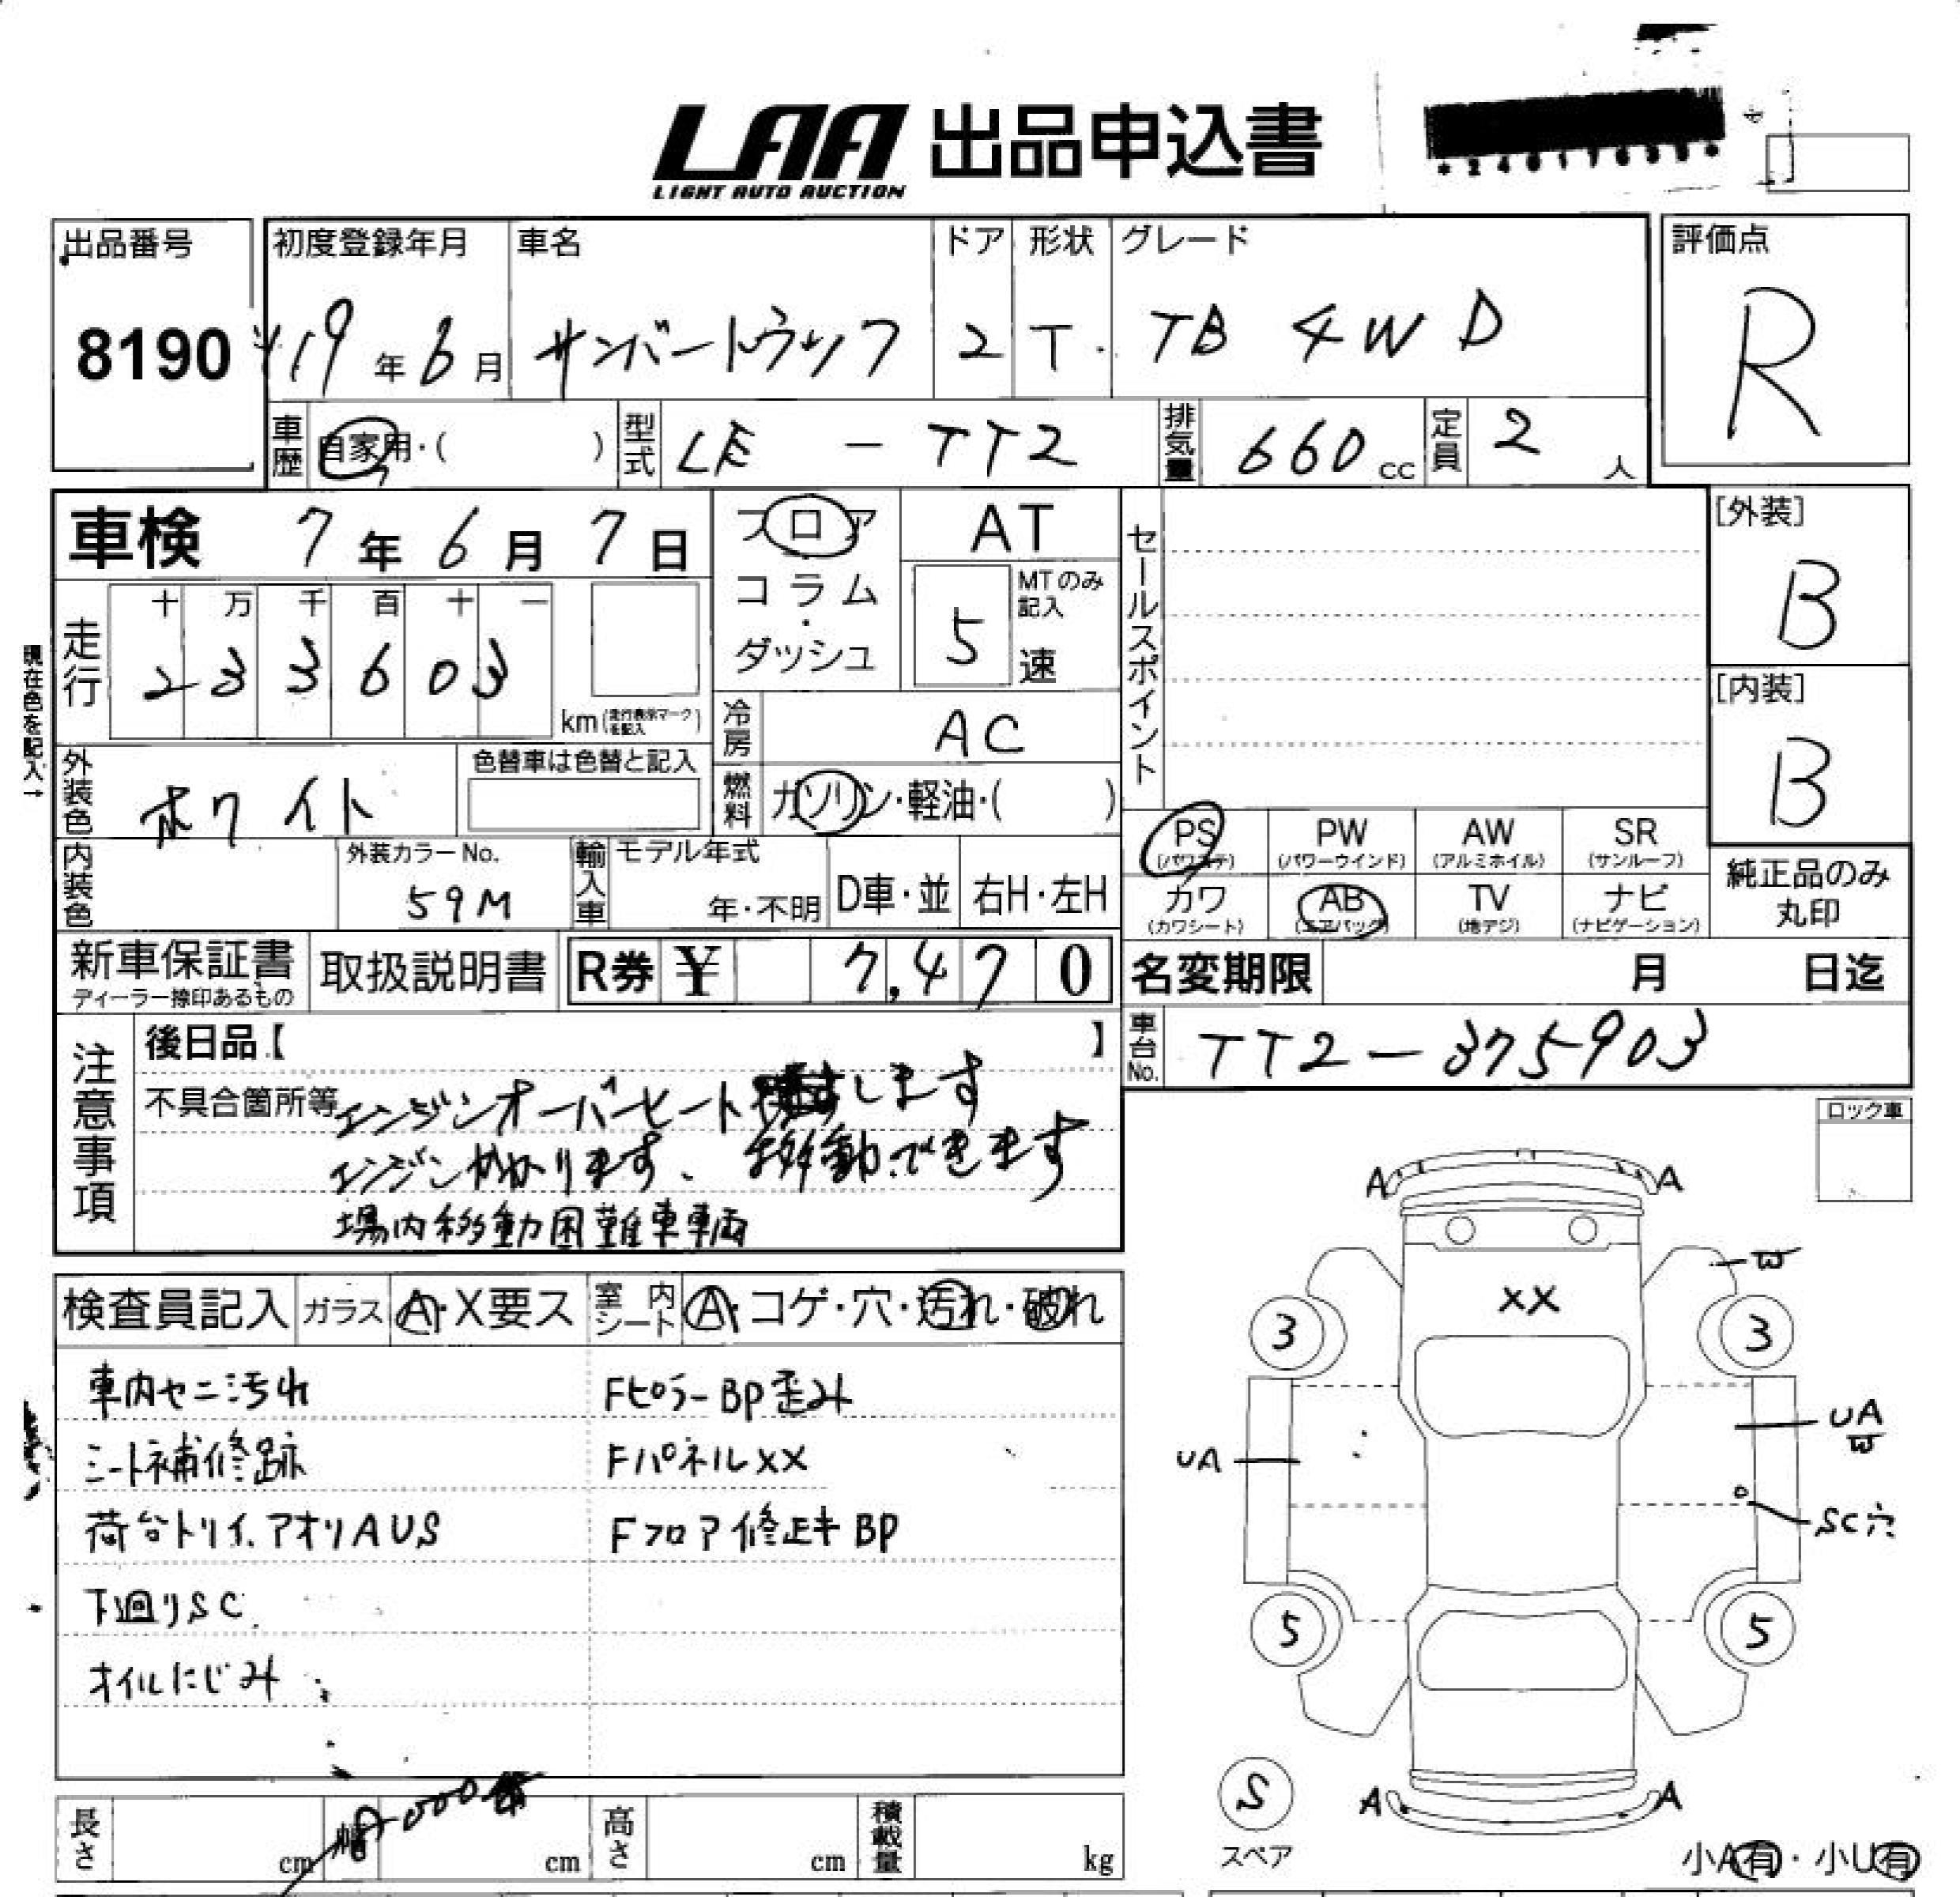 LAA 出品申込書
LIGHT AUTO AUCTION
出品番号
8190
初度登録年月
19年6月
車名
サンバートラック
ドア
2
形状
T.
グレード
TB 4WD
評価点
R
車歴
自家用・( )
型式
LE-TT2
排気量
660cc
定員
2人
車検 7年6月7日
フロア・コラム・ダッシュ
AT
5
MTのみ記入
速
セールスポイント
[外装]
B
[内装]
B
現在色を記入→
走行
十 万 千 百 十 一
2 3 3 6 0 3
km(走行表示マークを記入)
冷房
AC
外装色
ホワイト
色替車は色替と記入
燃料
ガソリン・軽油・( )
内装色
外装カラーNo.
59M
輸入車
モデル年式
年・不明
D車・並
右H・左H
PS (パワステ)
PW (パワーウインド)
AW (アルミホイル)
SR (サンルーフ)
カワ (カワシート)
AB (エアバッグ)
TV (地デジ)
ナビ (ナビゲーション)
純正品のみ丸印
新車保証書
ディーラー捺印あるもの
取扱説明書
R券 ¥ 7,470
名変期限 月 日迄
車台No.
TT2-375903
注意事項
後日品【 】
不具合箇所等
エンジンオーバーヒート します
エンジンかかります、移動できます
場内移動困難車輌
ロック車
検査員記入
ガラス
A・X要ス
室内シート
A・コゲ・穴・汚れ・破れ
車内セニ汚れ
シート補修跡
荷台トリイ.アオリAUS
下廻りSC
オイルにじみ
FピラーBP歪み
FパネルXX
Fフロア修正キBP
A A
W
XX
3 3
UA
UA
W
SC穴
5 5
S
スペア
A A
小A有・小U有
長さ cm
幅 cm
高さ cm
積載量 kg